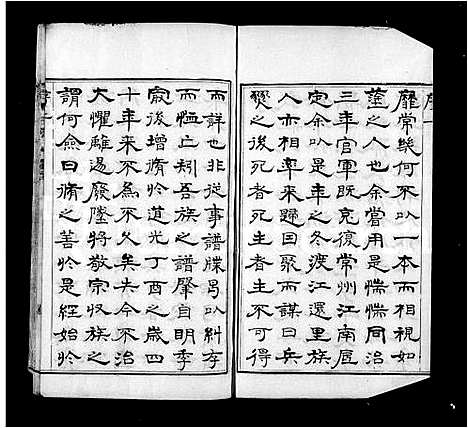 序
靡常幾何不以一本而相視如
塗之人也余嘗用是惴惴同治
三年官軍既克復常州江南底
定余以是年之冬渡江還里族
人亦相率來歸曰聚而謀曰兵
燹之後死者死生者生不可得
而詳也非從事譜牒曷以糾存
而恤亡矧吾族之譜肇自明季
最後增脩於道光丁酉之歲四
十年來不為不久矣失今不治
大懼離逷廢墜將敬宗收族之
謂何僉曰脩之善於是經始於